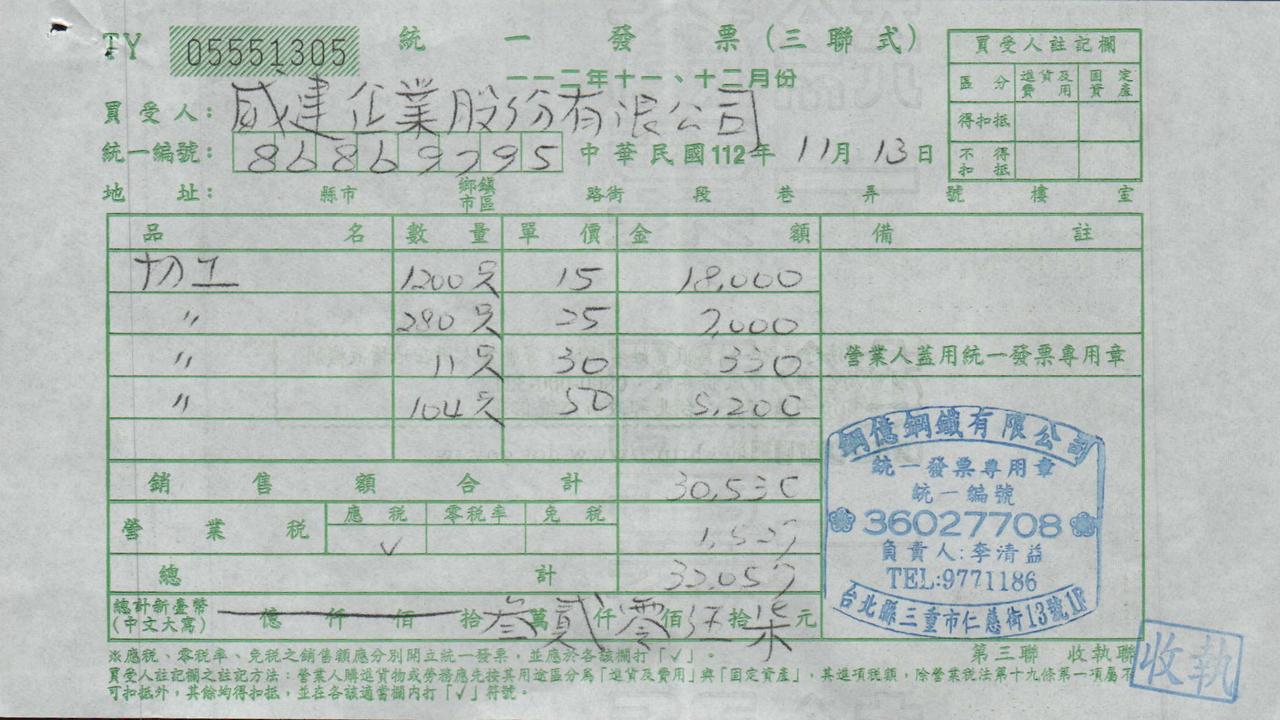 TY 05551305 統一發票(三聯式)
一一二年十一、十二月份
買受人: 威建企業股份有限公司
統一編號: 86869795 中華民國112年 11月 13日
地址: 縣市 鄉鎮市區 路街 段 巷 弄 號 樓 室
買受人註記欄
區分 進貨及費用 固定資產
得扣抵
不得扣抵
品名 數量 單價 金額 備註
切工 1200只 15 18,000
〃 280只 25 7,000
〃 11只 30 330
〃 104只 50 5,200
銷售額合計 30,530
營業稅 應稅 零稅率 免稅
√ 1,527
總計 32,057
總計新臺幣(中文大寫) 億 仟 佰 拾叁萬貳仟零佰伍拾柒元
營業人蓋用統一發票專用章
鋼億鋼鐵有限公司
統一發票專用章
統一編號
36027708
負責人:李清益
TEL:9771186
台北縣三重市仁慈街13號1F
※應稅、零稅率、免稅之銷售額應分別開立統一發票,並應於各該欄打「√」。
第三聯 收執聯
買受人註記欄之註記方法:營業人購進貨物或勞務應先按其用途區分為「進貨及費用」與「固定資產」,其進項稅額,除營業稅法第十九條第一項屬不
可扣抵外,其餘均得扣抵,並在各該適當欄內打「√」符號。
收執